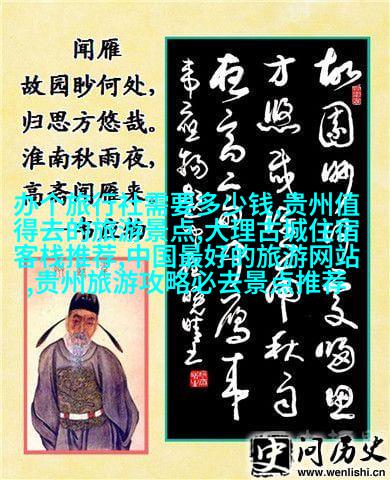 闻雁
故园眇何处,
归思方悠哉。
淮南秋雨夜,
高斋闻雁来。
故园眇何处归思
方悠哉淮南秋雨
夜高斋闻雁来
韦应物
办个旅行社需要多少钱,贵州值
得去的旅游景点,大理古城住宿
客栈推荐,中国最好的旅游网站
,贵州旅游攻略必去景点推荐
问历史
www.wenlishi.com